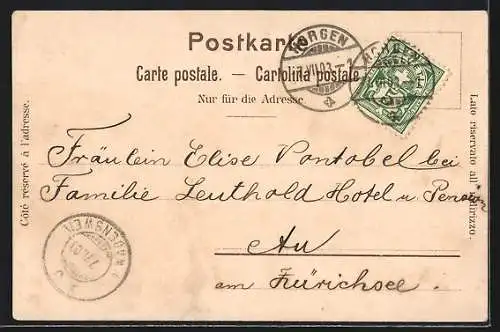 Postkarte
Carte postale. — Cartolina postale
Nur für die Adresse.
Côté réservé à l'adresse.
Lato riservato all' indirizzo.
HORGEN
VII.03
HORGEN
Fräulein Elise Pontobel bei
Familie Leuthold Hotel u Pension
Au
am Zürichsee.
WAEDENSWEIL